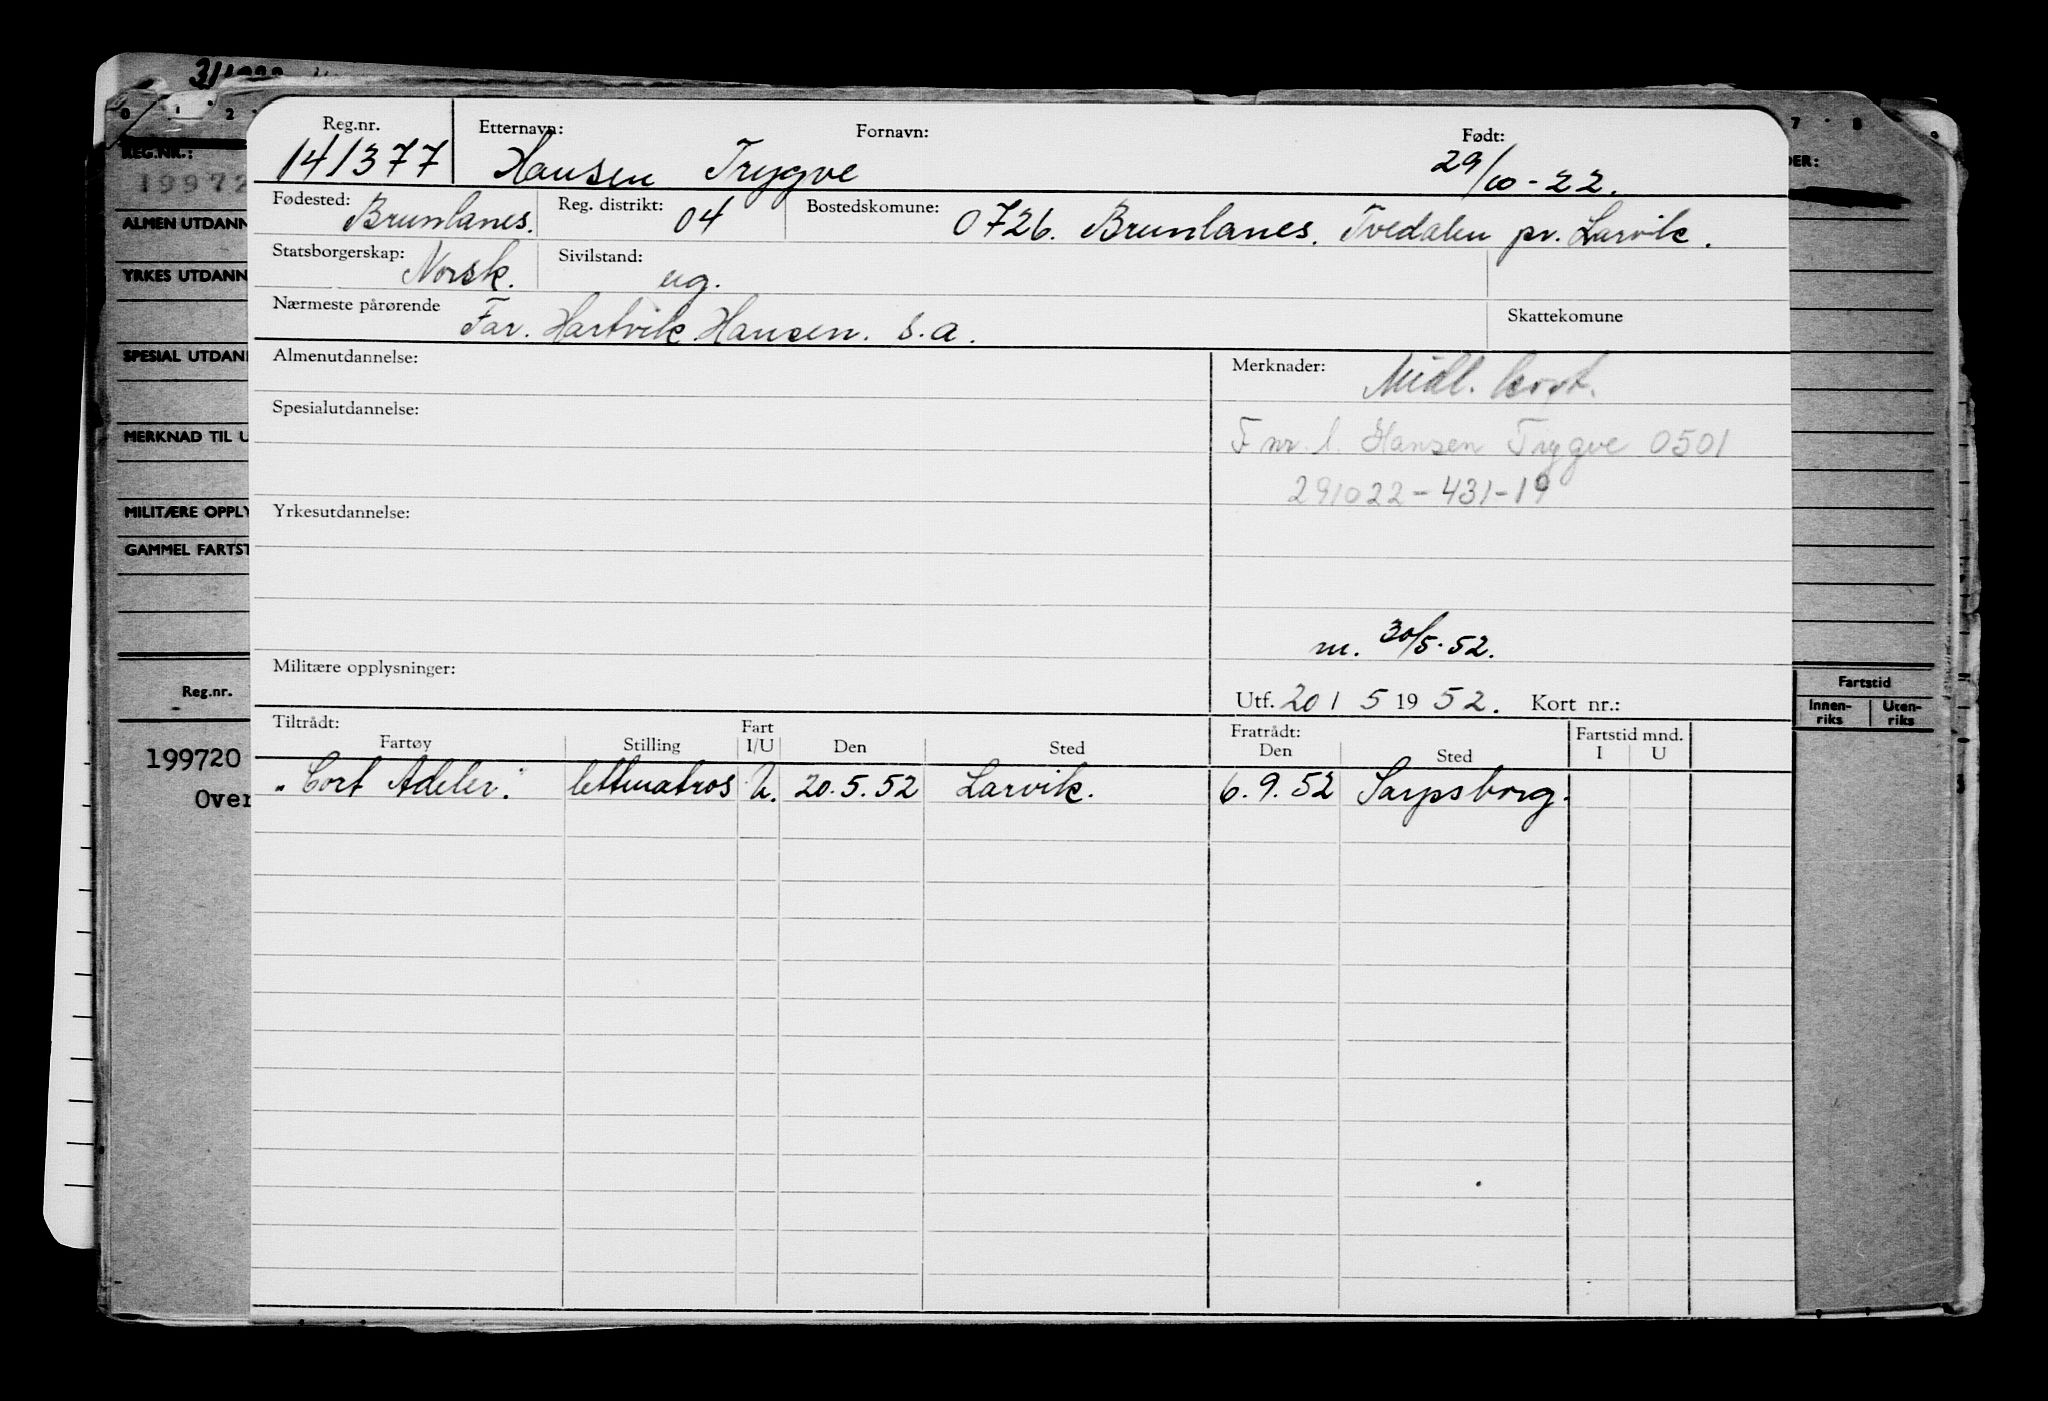 0 1 2 7 8 9
REG.NR.:
19972
ALMEN UTDANN
YRKES UTDANN
SPESIAL UTDAN
MERKNAD TIL U
MILITÆRE OPPLY
GAMMEL FARTST
Reg.nr.
199720
Over
DER:
Fartstid
Innen-riks Uten-riks
Reg.nr. Etternavn: Fornavn: Født:
141377 Hansen Trygve 29/10-22.
Fødested: Brunlanes. Reg. distrikt: 04 Bostedskomune: 0726. Brunlanes. Tvedalen pr. Larvik.
Statsborgerskap: Norsk. Sivilstand: ug.
Nærmeste pårørende Far. Hartvik Hansen. s.a. Skattekomune
Almenutdannelse: Merknader: Midl. kort.
Spesialutdannelse: F nr. l. Hansen Trygve 0501
291022-431-19
Yrkesutdannelse:
m. 30/5-52.
Militære opplysninger:
Utf. 20 / 5 19 52. Kort nr.:
Tiltrådt: Fratrådt: Fartstid mnd.
Fartøy Stilling Fart I/U Den Sted Den Sted I U
"Cort Adeler." lettmatros U. 20.5.52 Larvik. 6.9.52 Sarpsborg.